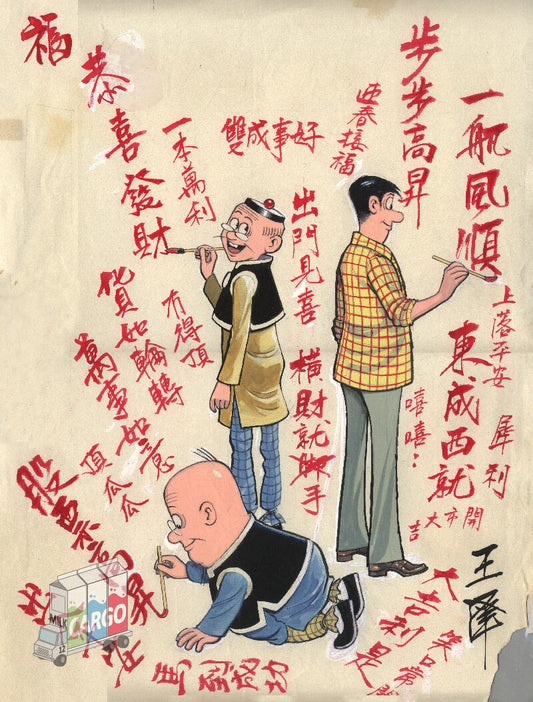 福
恭喜發財
一本萬利
雙成事好
迎春接福
步步高昇
一帆風順
出門見喜
橫財就腳手
冇得頂
貨如輪轉
萬事如意
頂瓜瓜
股票高昇
上落平安
東成西就
嘻嘻！
犀利
大吉
開市
王澤
大吉利是
馬到成功
MILK CARGO
12